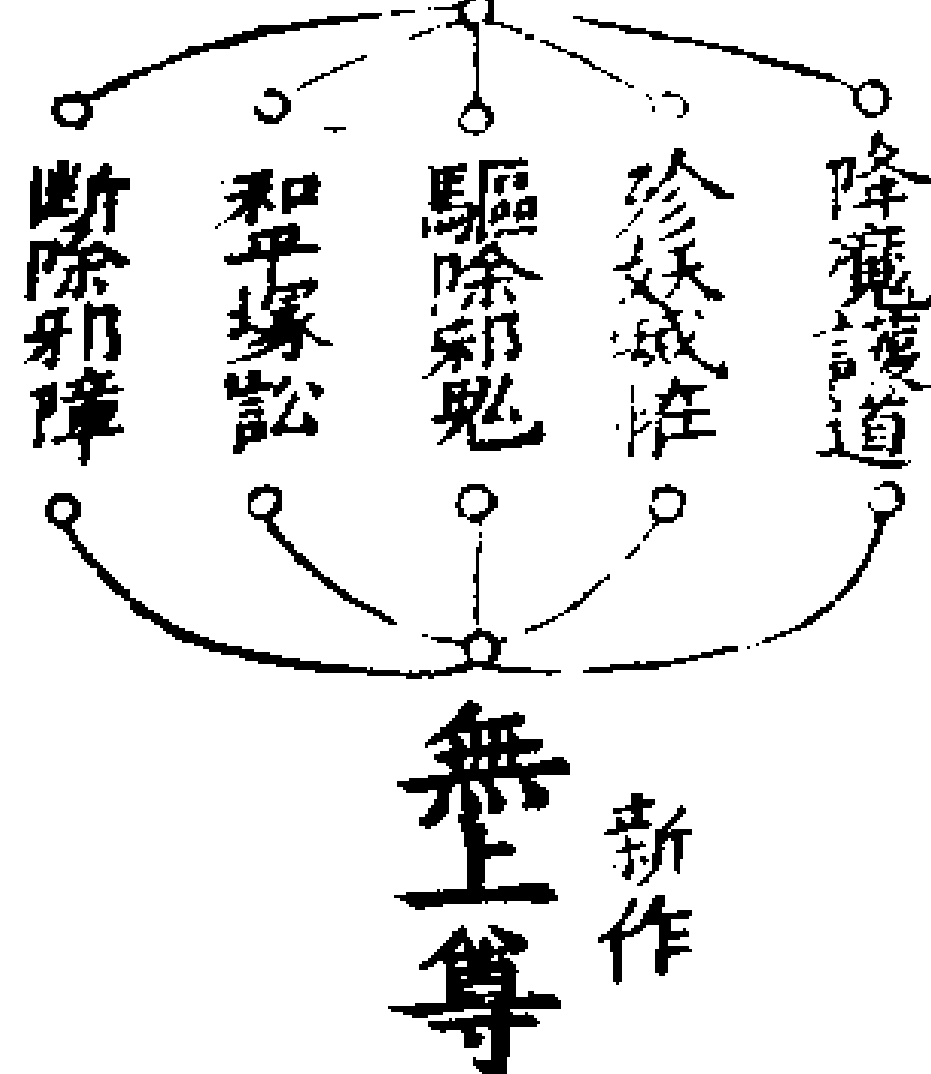 降魔護道
殄妖滅怪
驅除邪鬼
和平塚訟
斷除邪障
無上尊
新作